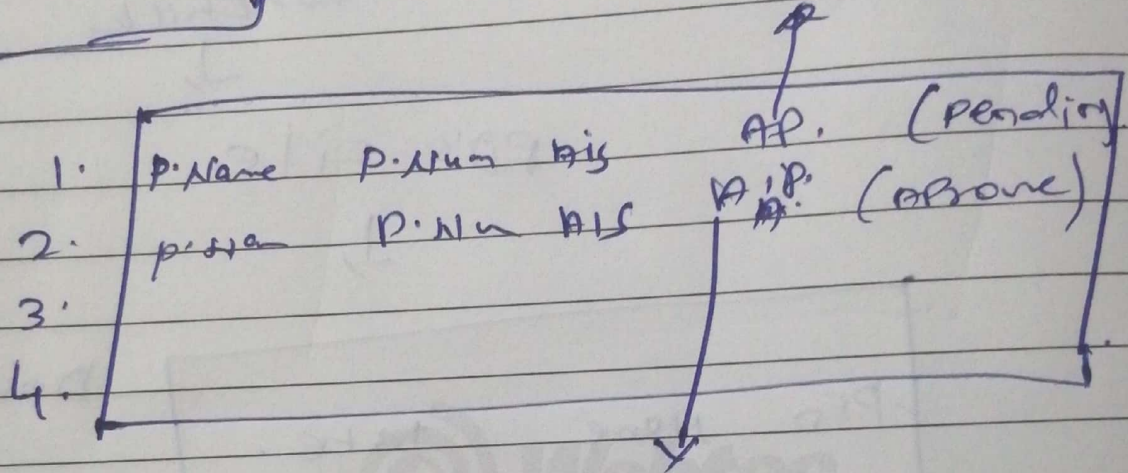 1. P.Name P.Num Ais AP. (Pending
2. P.Na P.Nu AIS A.P. (APProve)
3.
4.